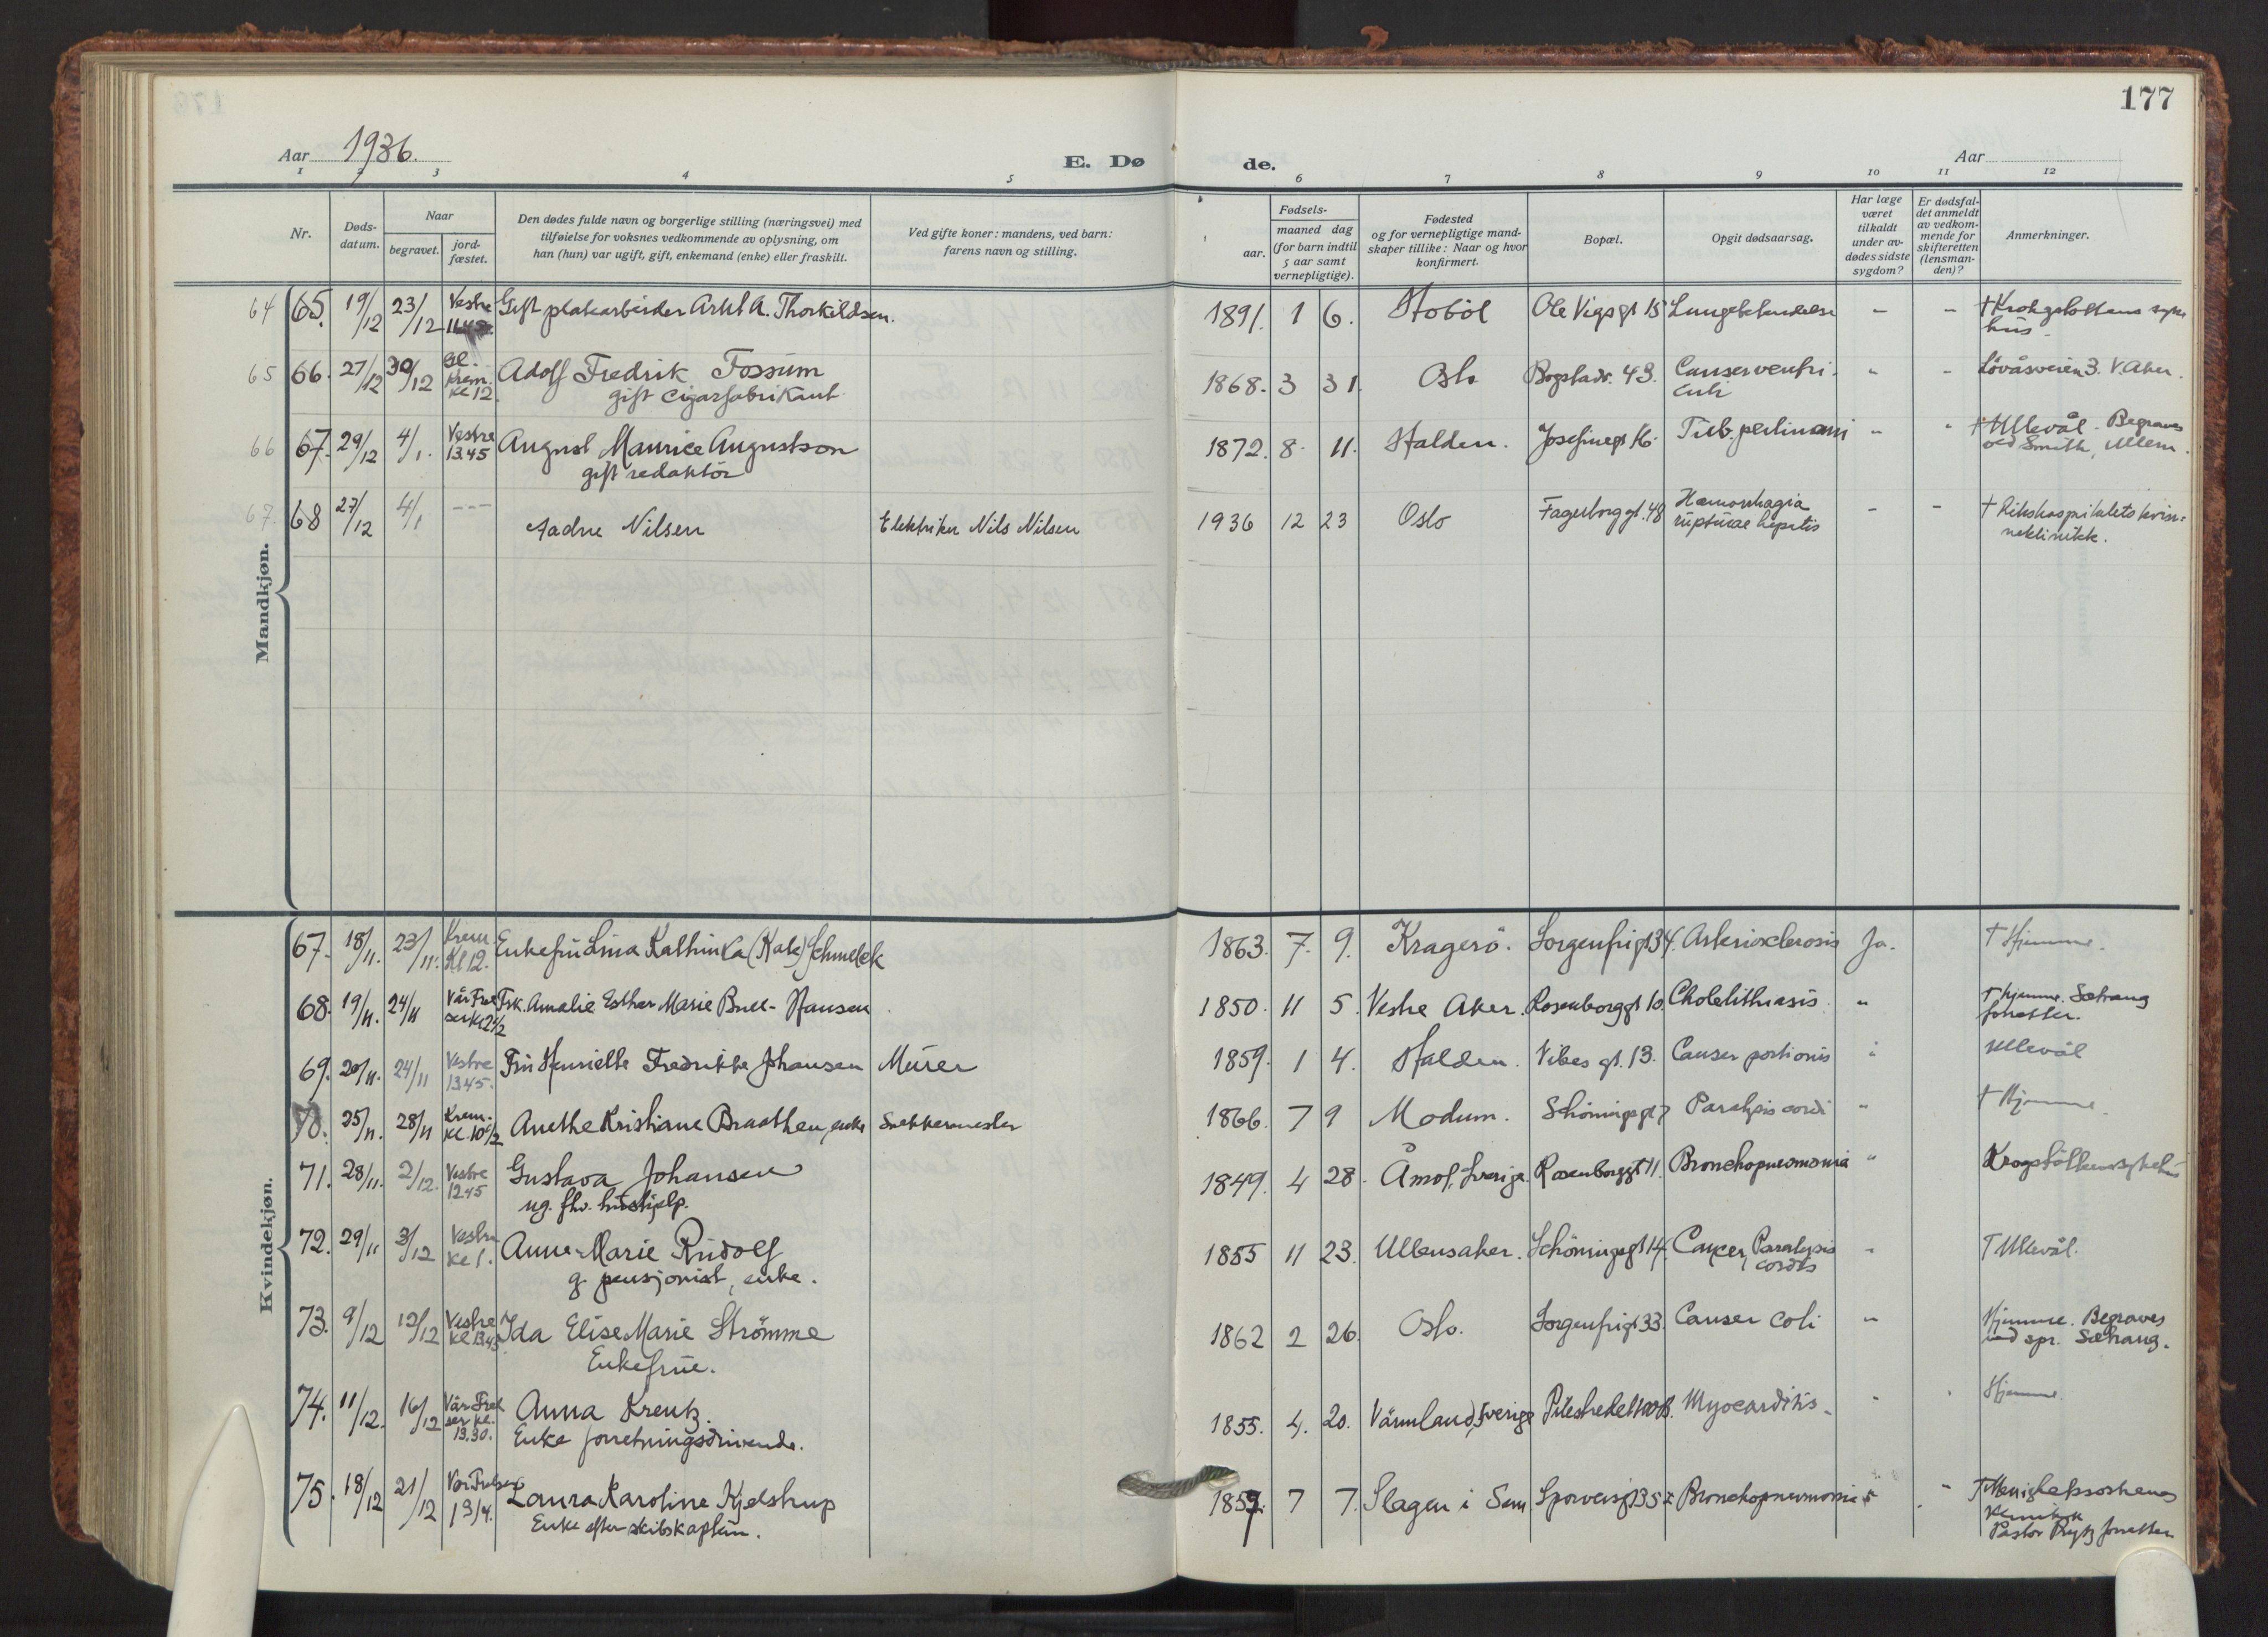 177
Aar 1936.
E. Dø de.
Aar
1 2 3 4 5 6 7 8 9 10 11 12
Nr.
Døds-datum.
Naar
begravet.
jord-fæstet.
Den dødes fulde navn og borgerlige stilling (næringsvei) med
tilføielse for voksnes vedkommende av oplysning, om
han (hun) var ugift, gift, enkemand (enke) eller fraskilt.
Ved gifte koner: mandens, ved barn:
farens navn og stilling.
Fødsels-
aar.
maaned dag
(for barn indtil
5 aar samt
vernepligtige).
Fødested
og for vernepligtige mand-
skaper tillike: Naar og hvor
konfirmert.
Bopæl.
Opgit dødsaarsag.
Har læge
været
tilkaldt
under av-
dødes sidste
sygdom?
Er dødsfal-
det anmeldt
av vedkom-
mende for
skifteretten
(lensman-
den)?
Anmerkninger.
Mandkjøn.
64 65. 19/12 23/12 Vestre Gift platearbeider A. Thorkildsen. 1891. 1 6. Hobøl Ole Vigs gt 15 Lungebetendelse - -
65 66. 27/12 30/12 Gl. Krem. Kl 12. Adolf Fredrik Fossum 1868. 3 31. Oslo Bogstadv. 43. Cancer ventri- " - Lövåsveien 3. V. Aker.
gift cigarfabrikant culi
66 67. 29/12 4/1. Vestre 13.45 August Maurice Augustson 1872. 8. 11. Halden. Josefinegt 16. Tub. pulmonum " " † Ullevål. Begraves
gift redaktör ved Smith, Ullern.
67. 68 27/12 4/1 --- Aadne Nilsen Elektriker Nils Nilsen 1936 12 23 Oslo Fagerborggt. 48 Hæmorrhagia - - † Rikshospitalets kvin=
rupturae hepatis neklinikk.
Kvindekjøn.
67. 18/11. 23/11. Krem. Kl 12. Enkefru Lina Kathinka (Kate) Schmelck 1863. 7. 9. Kragerö. Sorgenfrigt 34. Arteriosclerosis Ja. † Hjemme.
68. 19/11. 24/11 Vår Frelser kl 2 1/2 Frk. Amalie Esther Marie Bull-Hansen 1850. 11 5. Vestre Aker. Rosenborggt 10. Cholelithiasis. " † hjemme. Sætrang
forretter.
69. 20/11. 24/11 Vestre 13.45. Fru Henriette Fredrikke Johansen Murer 1859. 1 4. Halden. Vibes gt. 13. Cancer portionis " Ullevål
70. 25/11. 28/11 Krem. Kl. 10 1/2 Anethe Kristiane Braathen, enke Snekkermester 1866. 7 9 Modum. Schöningsgt 7 Paralysis cordi " † Hjemme.
71. 28/11. 2/12. Vestre 12.45 Gustava Johansen 1849. 4 28. Åmol, Sverige Rosenborggt 11. Bronchopneumonia " Krogstöttens sykehus
ug. fhv. hushjelp.
72. 29/11 3/12 Vestre Kl 1. Anne-Marie Rudolf 1855 11 23. Ullensaker. Schöningsgt 14. Cancer, Paralysis " † Ullevål.
g. pensjonist, enke. cordis
73. 9/12 12/12 Vestre Kl 13.45 Ida Elise Marie Strömme 1862 2 26. Oslo. Sorgenfrigt 33. Cancer coli " Hjemme. Begraves
Enkefrue. ved spr. Sætrang.
74. 11/12. 16/12 Vår Frelser kl. 13.30. Anna Kreutz. 1855. 4. 20. Värmland, Sverige Pilestredet 100 B. Myocarditis. " " Hjemme.
Enke forretningsdrivende.
75. 18/12 21/12 Vor Frelsers 13/4. Laura Karoline Kjelstrup 1859. 7 7. Slagen i Sem Sporveisgt 35 Bronchopneumonia " - † Menighetssøstrenes
Enke efter skibskaptein. Klinikk
Pastor Prytz forretter